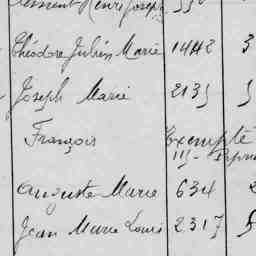 Clément Henri Joseph
Théodore Julien Marie 1442 3
Joseph Marie 2135
François Exempté
Auguste Marie 634 2
Jean Marie Louis 2317 5